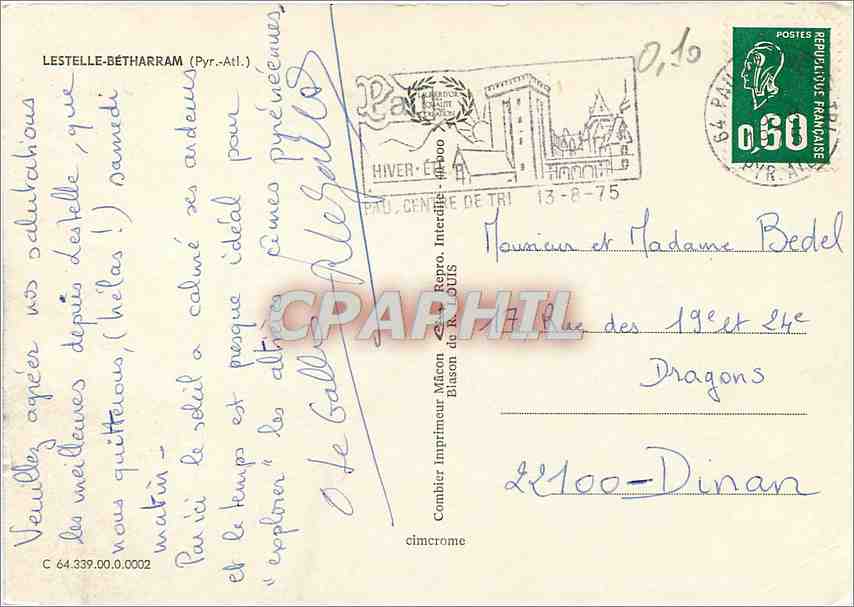 LESTELLE-BÉTHARRAM (Pyr.-Atl.)
Veuillez agréer nos salutations
les meilleures depuis Lestelle, que
nous quitterons, (hélas!) samedi
matin -
Par ici le soleil a calmé ses ardeurs
et le temps est presque idéal pour
"explorer" les altières cîmes pyrénéennes
O Le Gall
C 64.339.00.0.0002
cimcrome
Combier Imprimeur Mâcon Repro. Interdite - 40 000
Blason de R. LOUIS
CPARPHIL
Pau
HIVER-ÉTÉ
PAU. CENTRE DE TRI 13-8-75
0,10
POSTES
REPUBLIQUE FRANÇAISE
0,60
64 PAU TRI
PYR. ATL.
Monsieur et Madame Bedel
17 Rue des 19e et 24e
Dragons
22100-Dinan